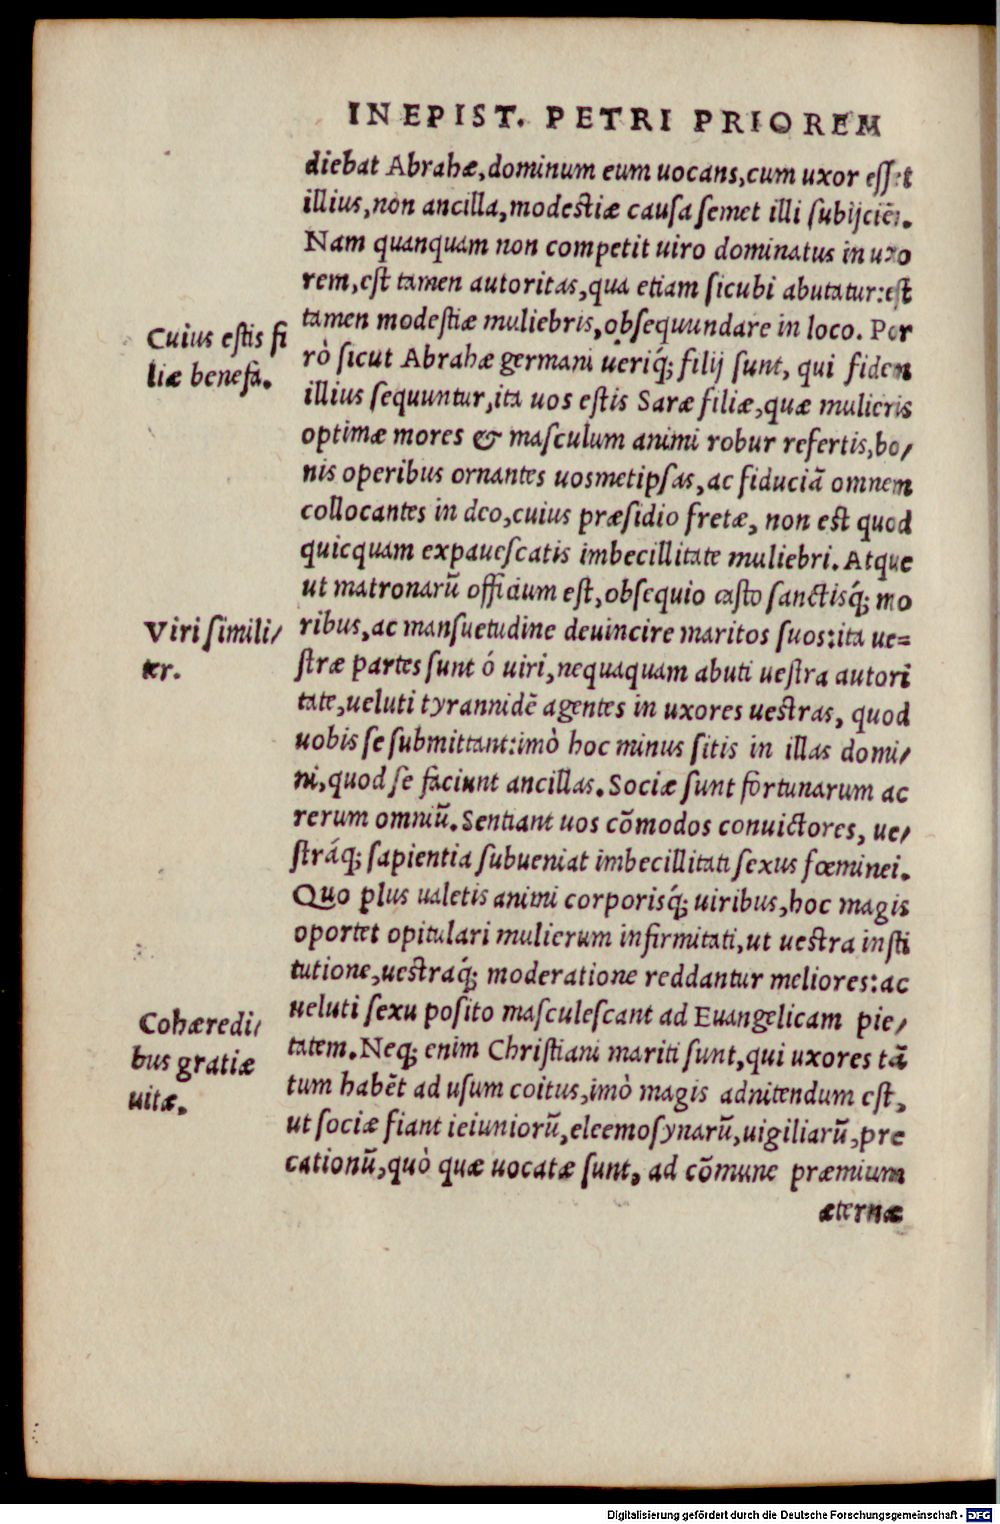 IN EPIST. PETRI PRIOREM
diebat Abrahæ, dominum eum uocans, cum uxor esset
illius, non ancilla, modestiæ causa semet illi subijciẽs.
Nam quanquam non competit uiro dominatus in uxo
rem, est tamen autoritas, qua etiam sicubi abutatur: est
tamen modestiæ muliebris, obsequundare in loco. Por
Cuius estis fi
liæ benefa.
rò sicut Abrahæ germani ueriq́; filij sunt, qui fidem
illius sequuntur, ita uos estis Saræ filiæ, quæ mulieris
optimæ mores & masculum animi robur refertis, bo/
nis operibus ornantes uosmetipsas, ac fiduciã omnem
collocantes in deo, cuius præsidio fretæ, non est quod
quicquam expauescatis imbecillitate muliebri. Atque
ut matronarũ officium est, obsequio casto sanctisq́; mo
Viri simili/
ter.
ribus, ac mansuetudine deuincire maritos suos: ita ue=
stræ partes sunt ó uiri, nequaquam abuti uestra autori
tate, ueluti tyrannidẽ agentes in uxores uestras, quod
uobis se submittant: imò hoc minus sitis in illas domi/
ni, quod se faciunt ancillas. Sociæ sunt fortunarum ac
rerum omniũ. Sentiant uos cõmodos conuictores, ue/
stráq; sapientia subueniat imbecillitati sexus fœminei.
Quo plus ualetis animi corporisq́; uiribus, hoc magis
oportet opitulari mulierum infirmitati, ut uestra insti
tutione, uestraq́; moderatione reddantur meliores: ac
ueluti sexu posito masculescant ad Euangelicam pie/
Cohæredi/
bus gratiæ
uitæ.
tatem. Neq; enim Christiani mariti sunt, qui uxores tã
tum habẽt ad usum coitus, imò magis adnitendum est,
ut sociæ fiant ieiuniorũ, eleemosynarũ, uigiliarũ, pre
cationũ, quò quæ uocatæ sunt, ad cõmune præmium
æternæ
Digitalisierung gefördert durch die Deutsche Forschungsgemeinschaft - DFG